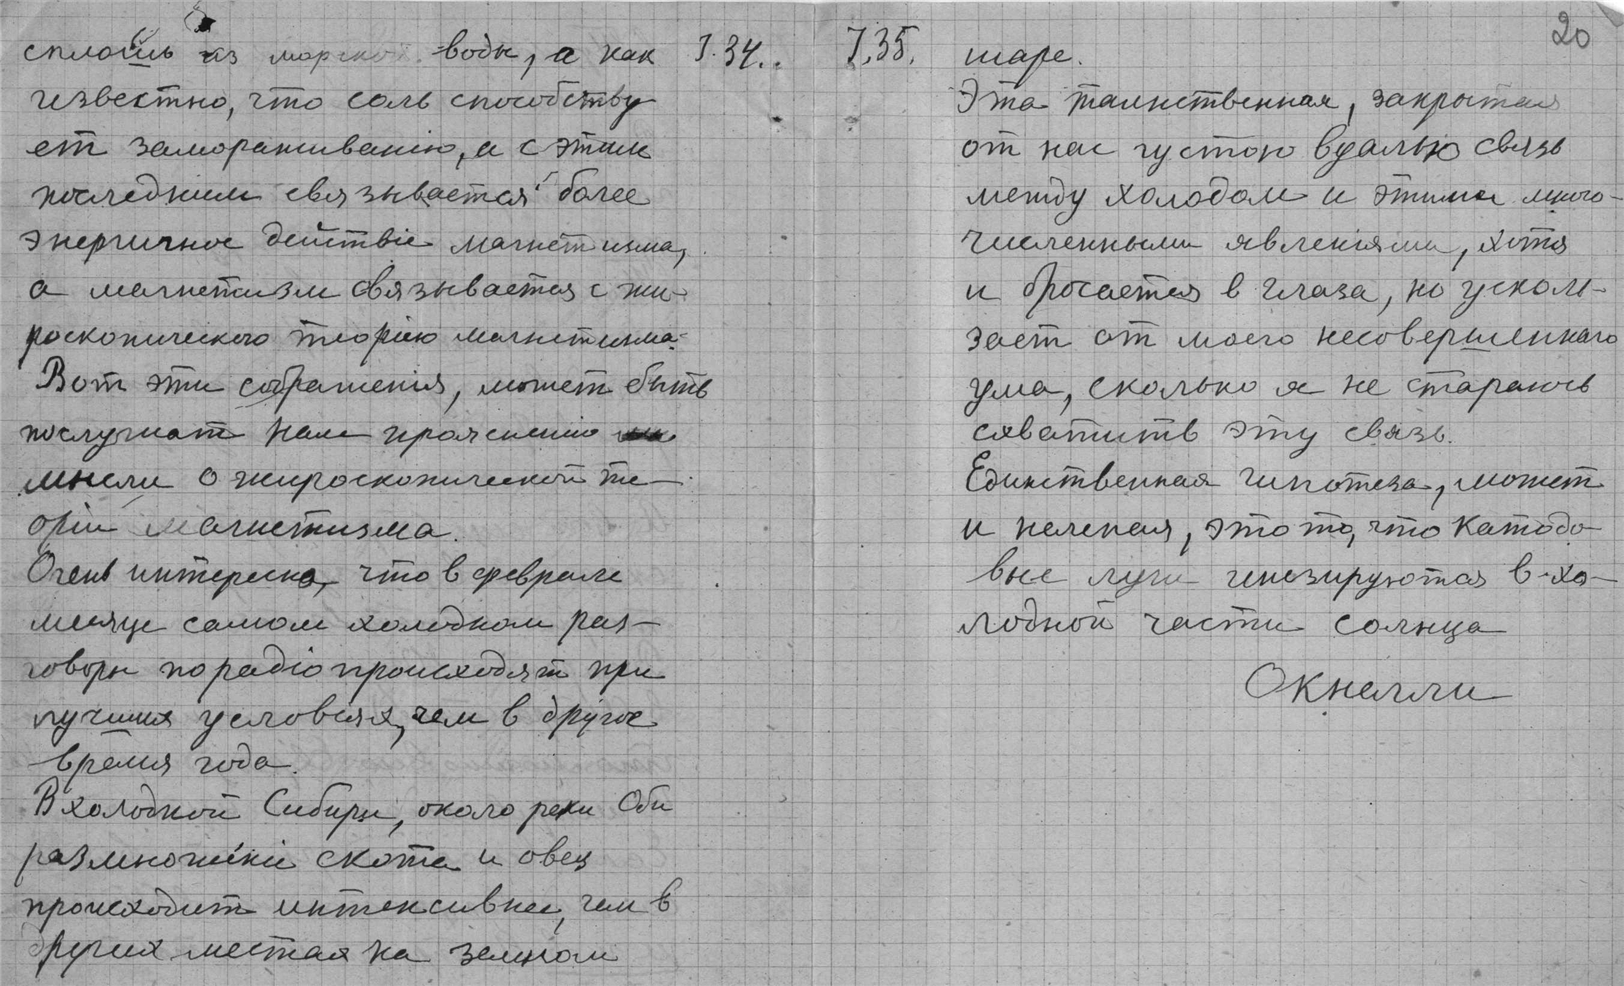 сплошь из морской воды, а как
известно, что соль способству
ет замораживанію, а с этим
последним связывается более
энергичное действіе магнетизма,
а магнетизм связывается с жи-
роскопическою теоріею магнетизма.
Вот эти соображенія, может быть
послужат нам прояснению
мысли о жироскопической те-
оріи магнетизма.
Очень интересно, что в феврале
месяце самом холодном раз-
говоры по радіо происходят при
лучших условіях, чем в другое
время года.
В холодной Сибири, около реки Оби
размноженіе скота и овец
происходит интенсивнее, чем в
других местах на земном
J.34..
J.35.
20
шаре.
Эта таинственная, закрытая
от нас густою вуалью связь
между холодом и этими много-
численными явленіями, хотя
и бросается в глаза, но усколь-
зает от моего несовершеннаго
ума, сколько я не стараюсь
схватить эту связь.
Единственная гипотеза, может
и нелепая, это то, что катодо
вые лучи генезируются в хо-
лодной части солнца
Окнелли